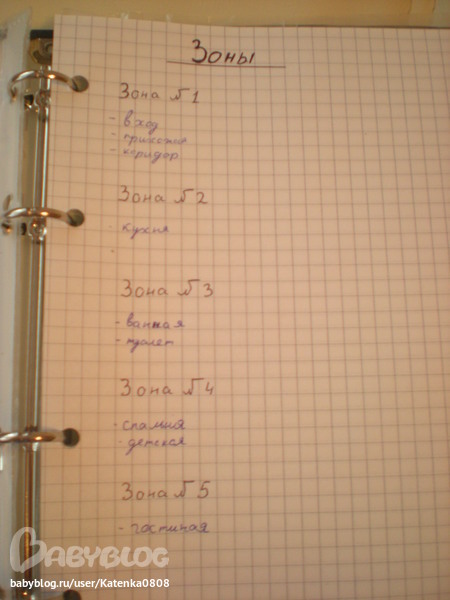 Зоны
Зона №1
- вход
- прихожая
- коридор
Зона №2
- кухня
-
Зона №3
- ванная
- туалет
Зона №4
- спальня
- детская
Зона №5
- гостиная
BABYBLOG
babyblog.ru/user/Katenka0808